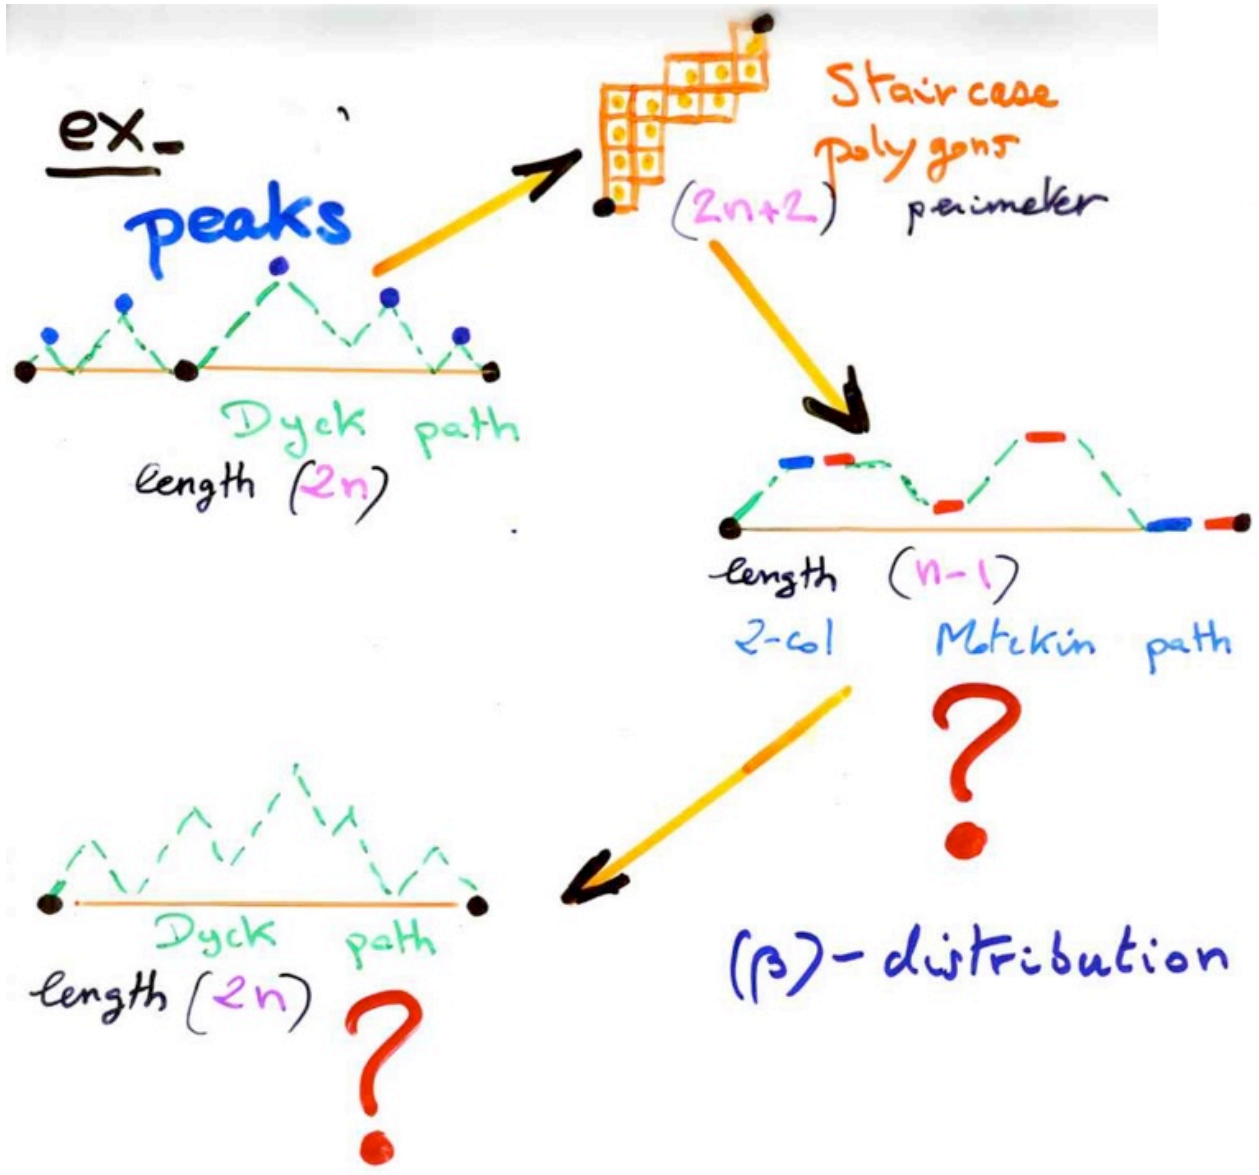 ex_
peaks
Staircase
polygons
(2n+2) perimeter
Dyck path
length (2n)
length (n-1)
2-col Motzkin path
?
Dyck path
length (2n)
?
(β)-distribution